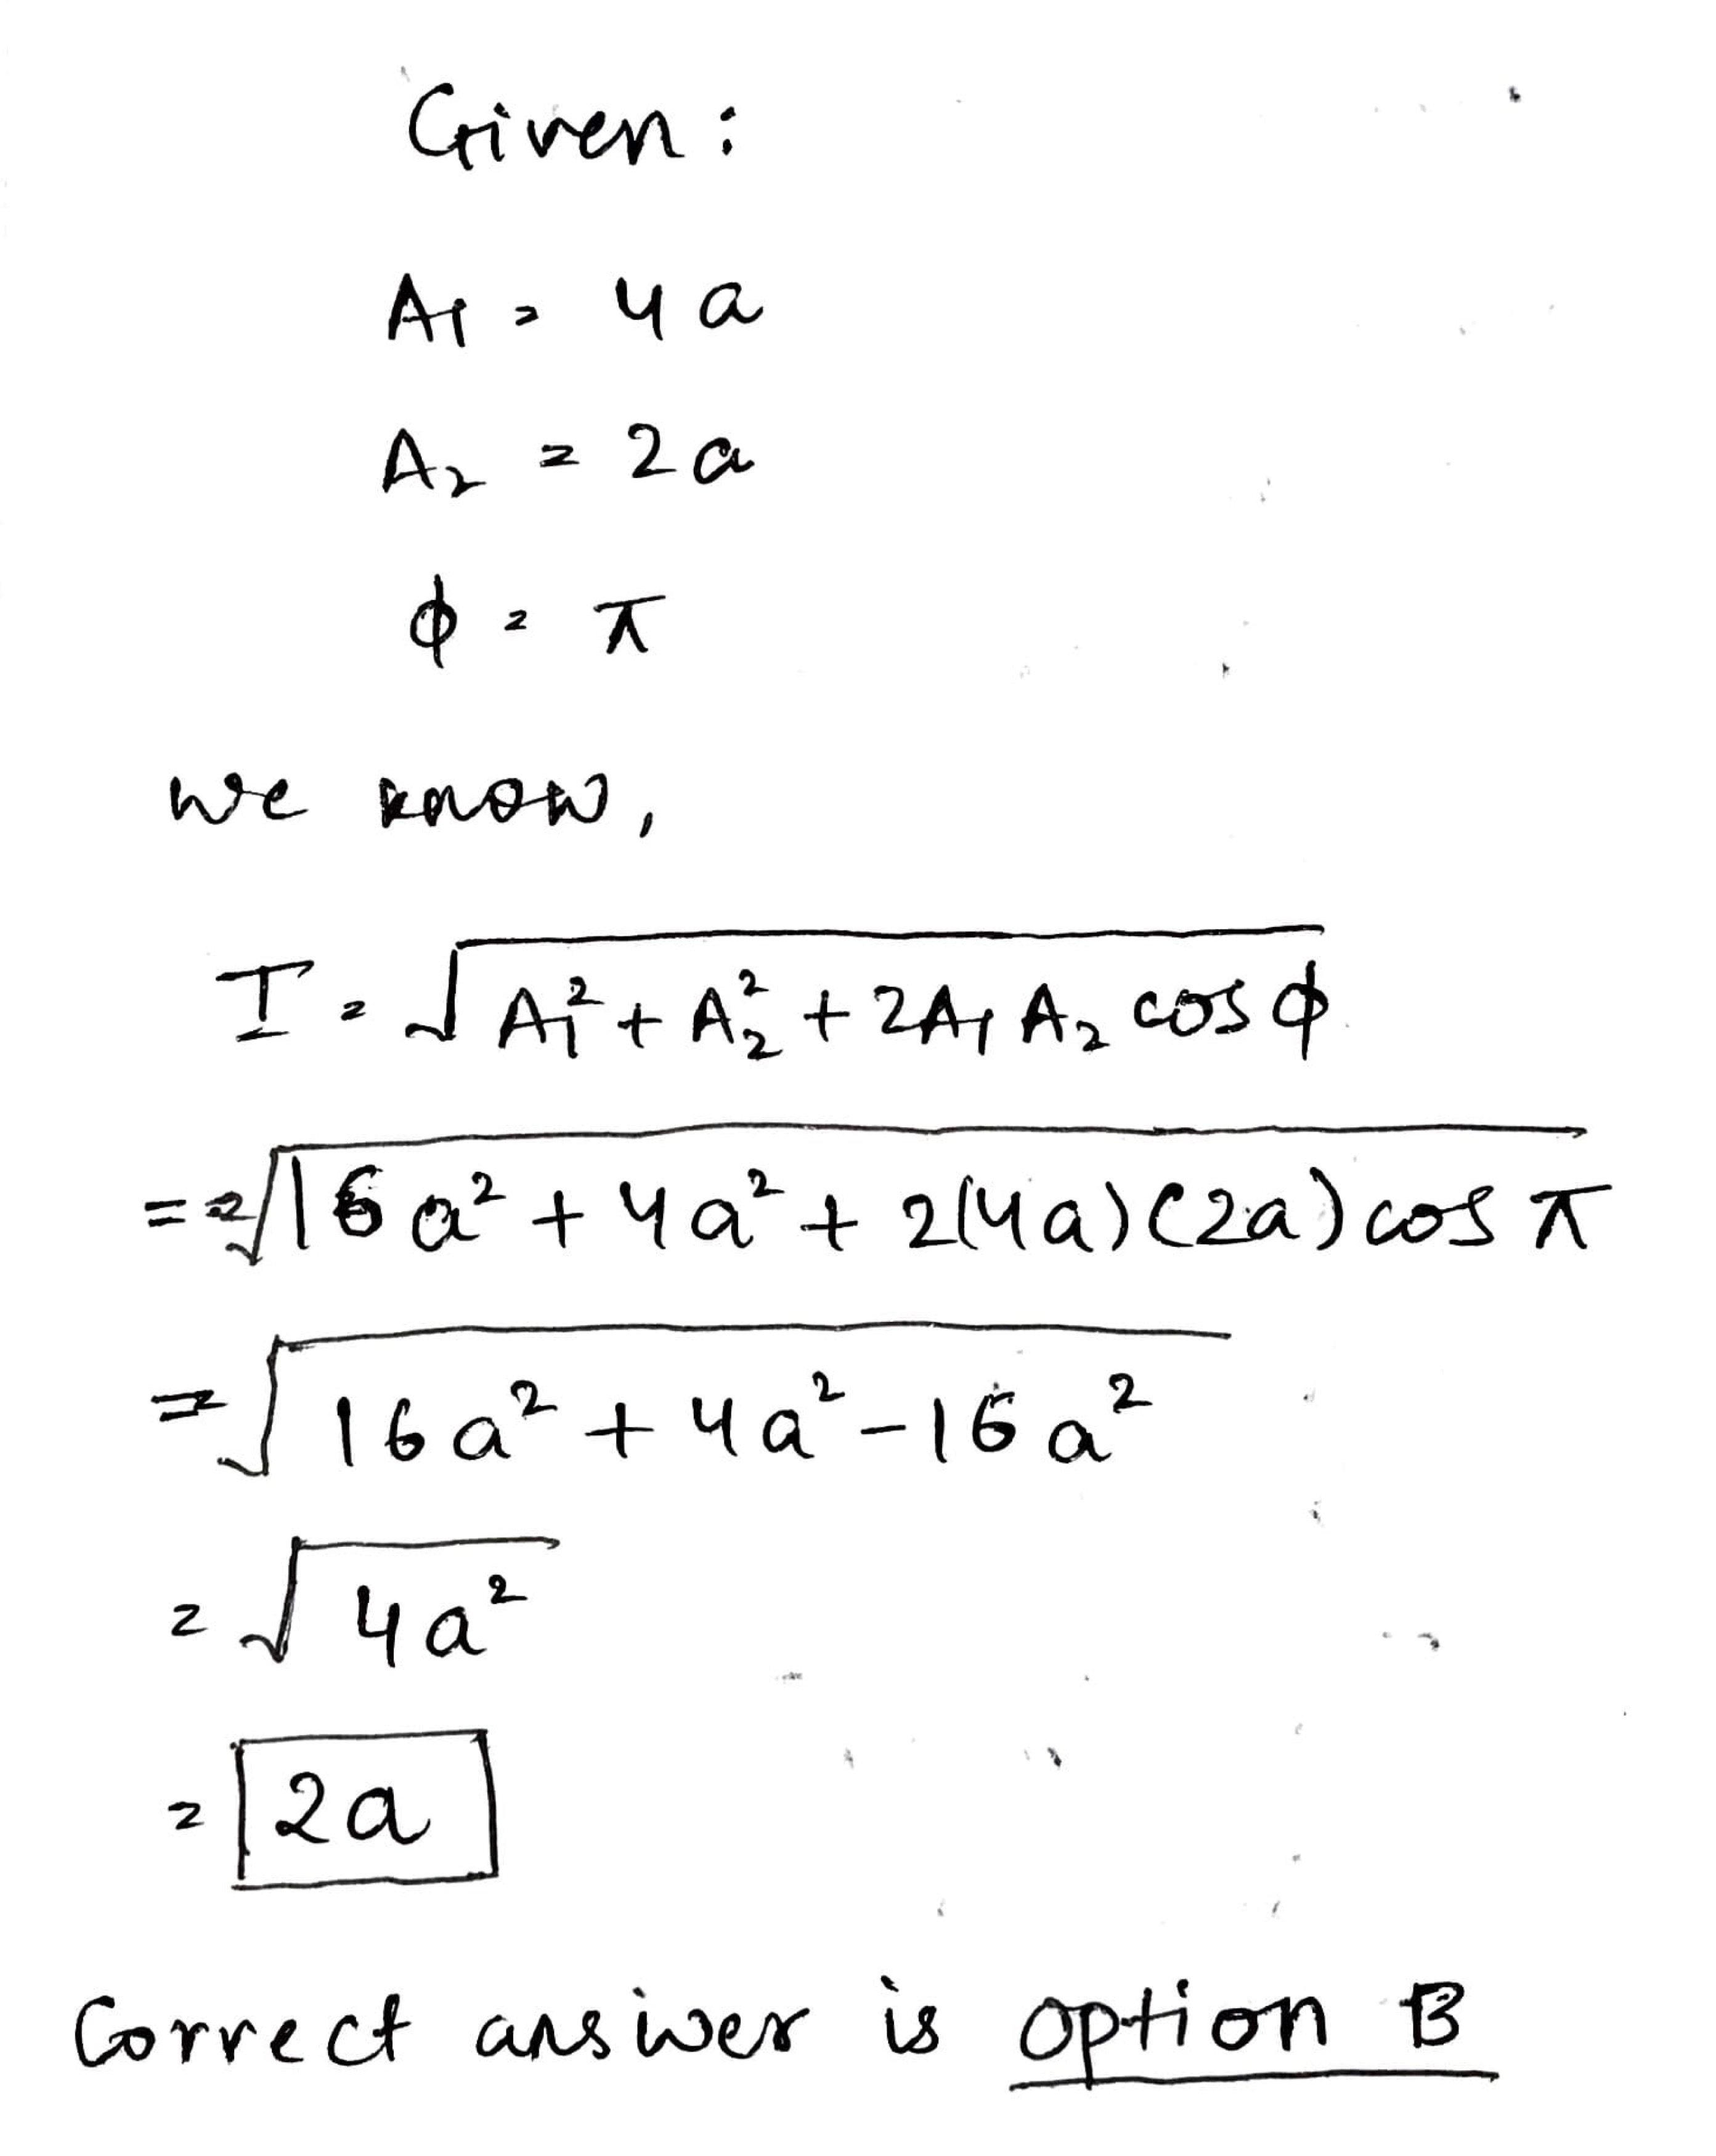 Given:
A₁ = 4a
A₂ = 2a
φ = π
we know,
I = √A₁² + A₂² + 2A₁A₂ cos φ
= √16a² + 4a² + 2(4a)(2a) cos π
= √16a² + 4a² - 16a²
= √4a²
= 2a
Correct answer is option B